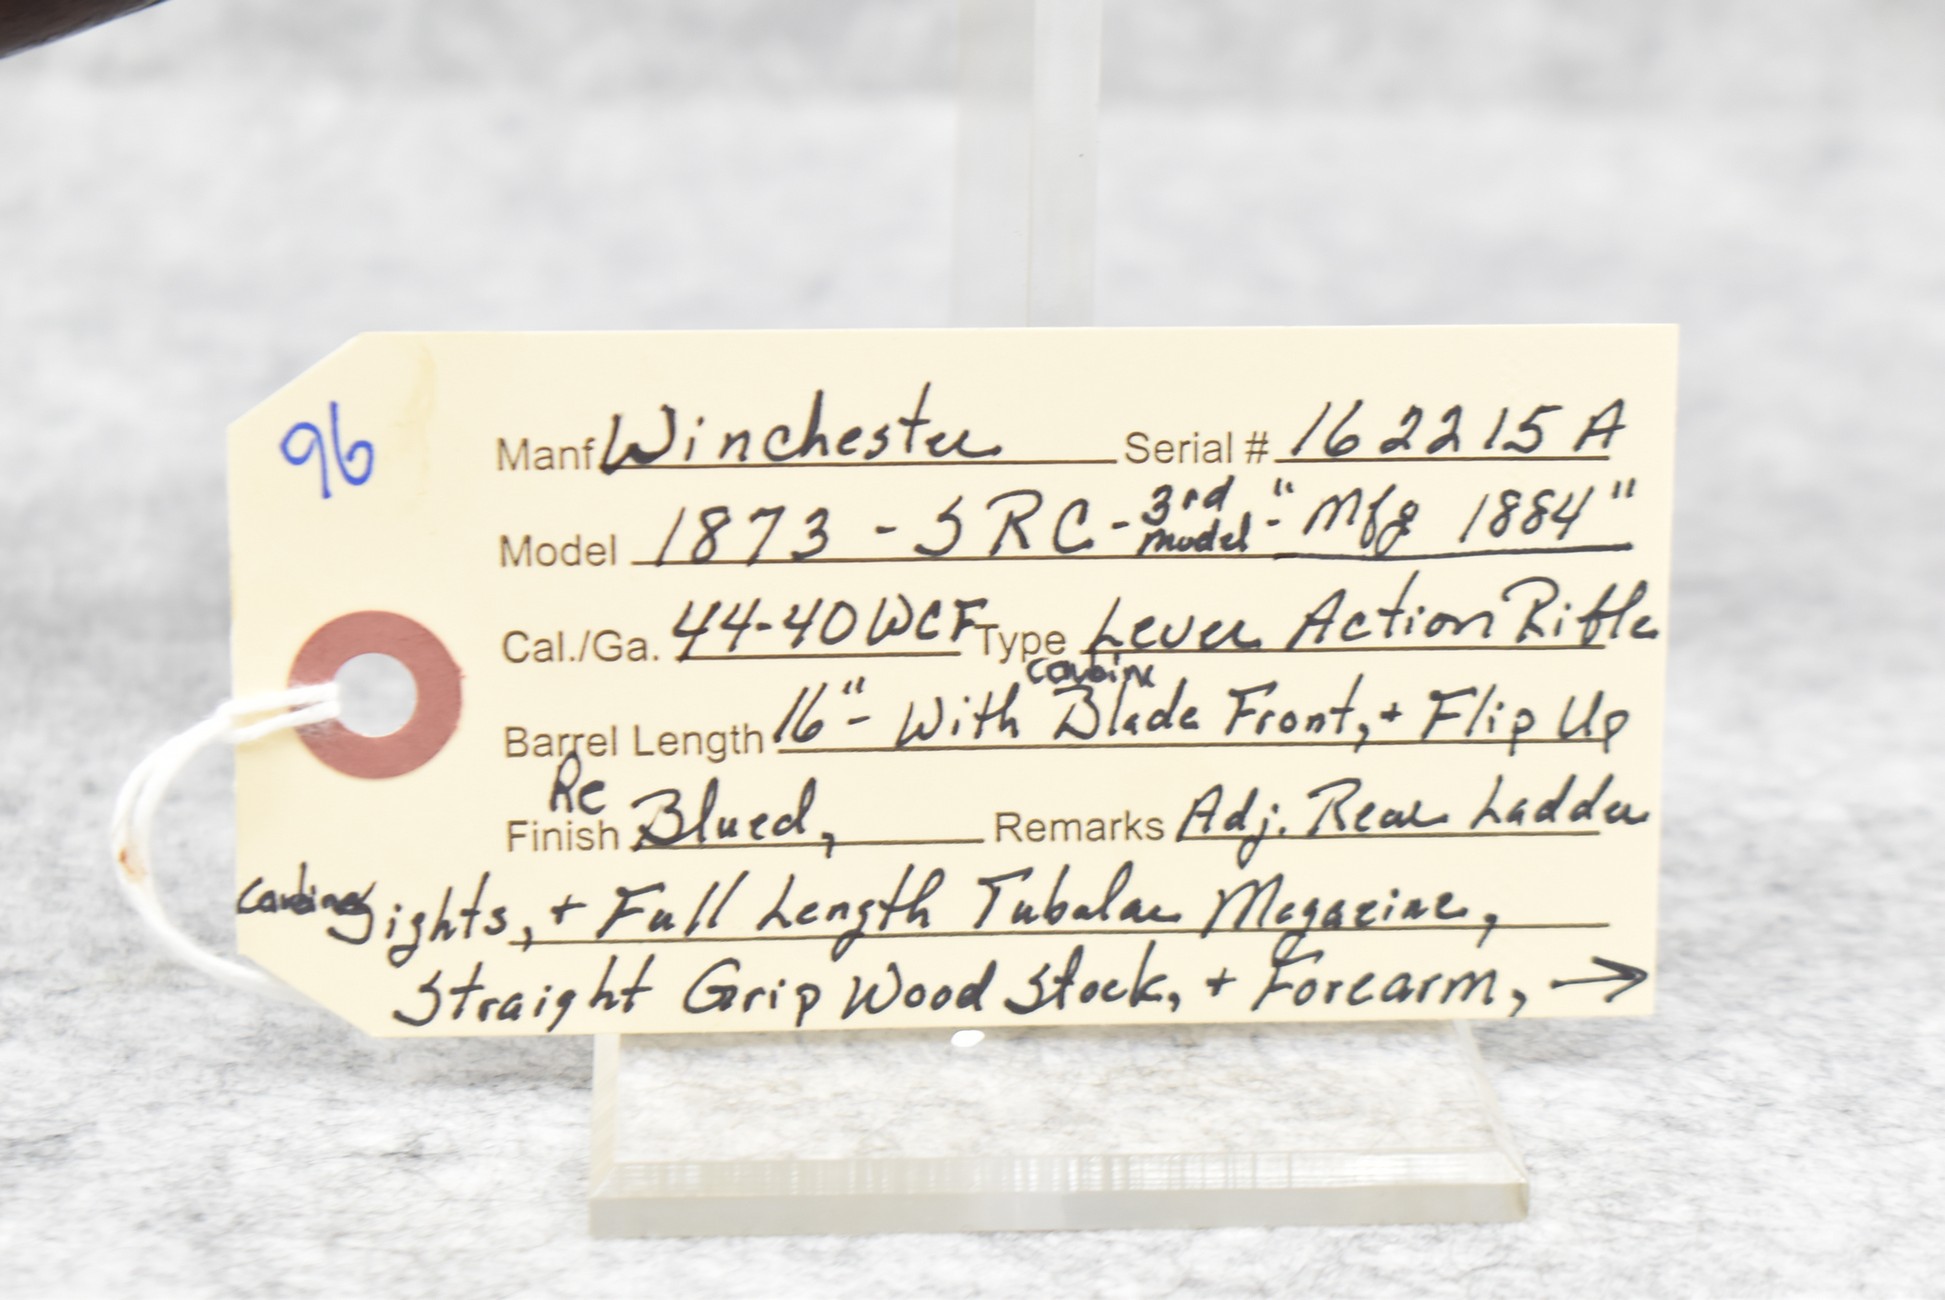 96
Manf Winchester Serial # 162215A
Model 1873 - SRC - 3rd Model - "Mfg 1884"
Cal./Ga. 44-40 WCF Type Lever Action Rifle
carbine
Barrel Length 16" - With Blade Front, + Flip Up
Re
Finish Blued, Remarks Adj. Rear Ladder
carbine Sights, + Full Length Tubular Magazine,
Straight Grip Wood Stock, + Forearm, →